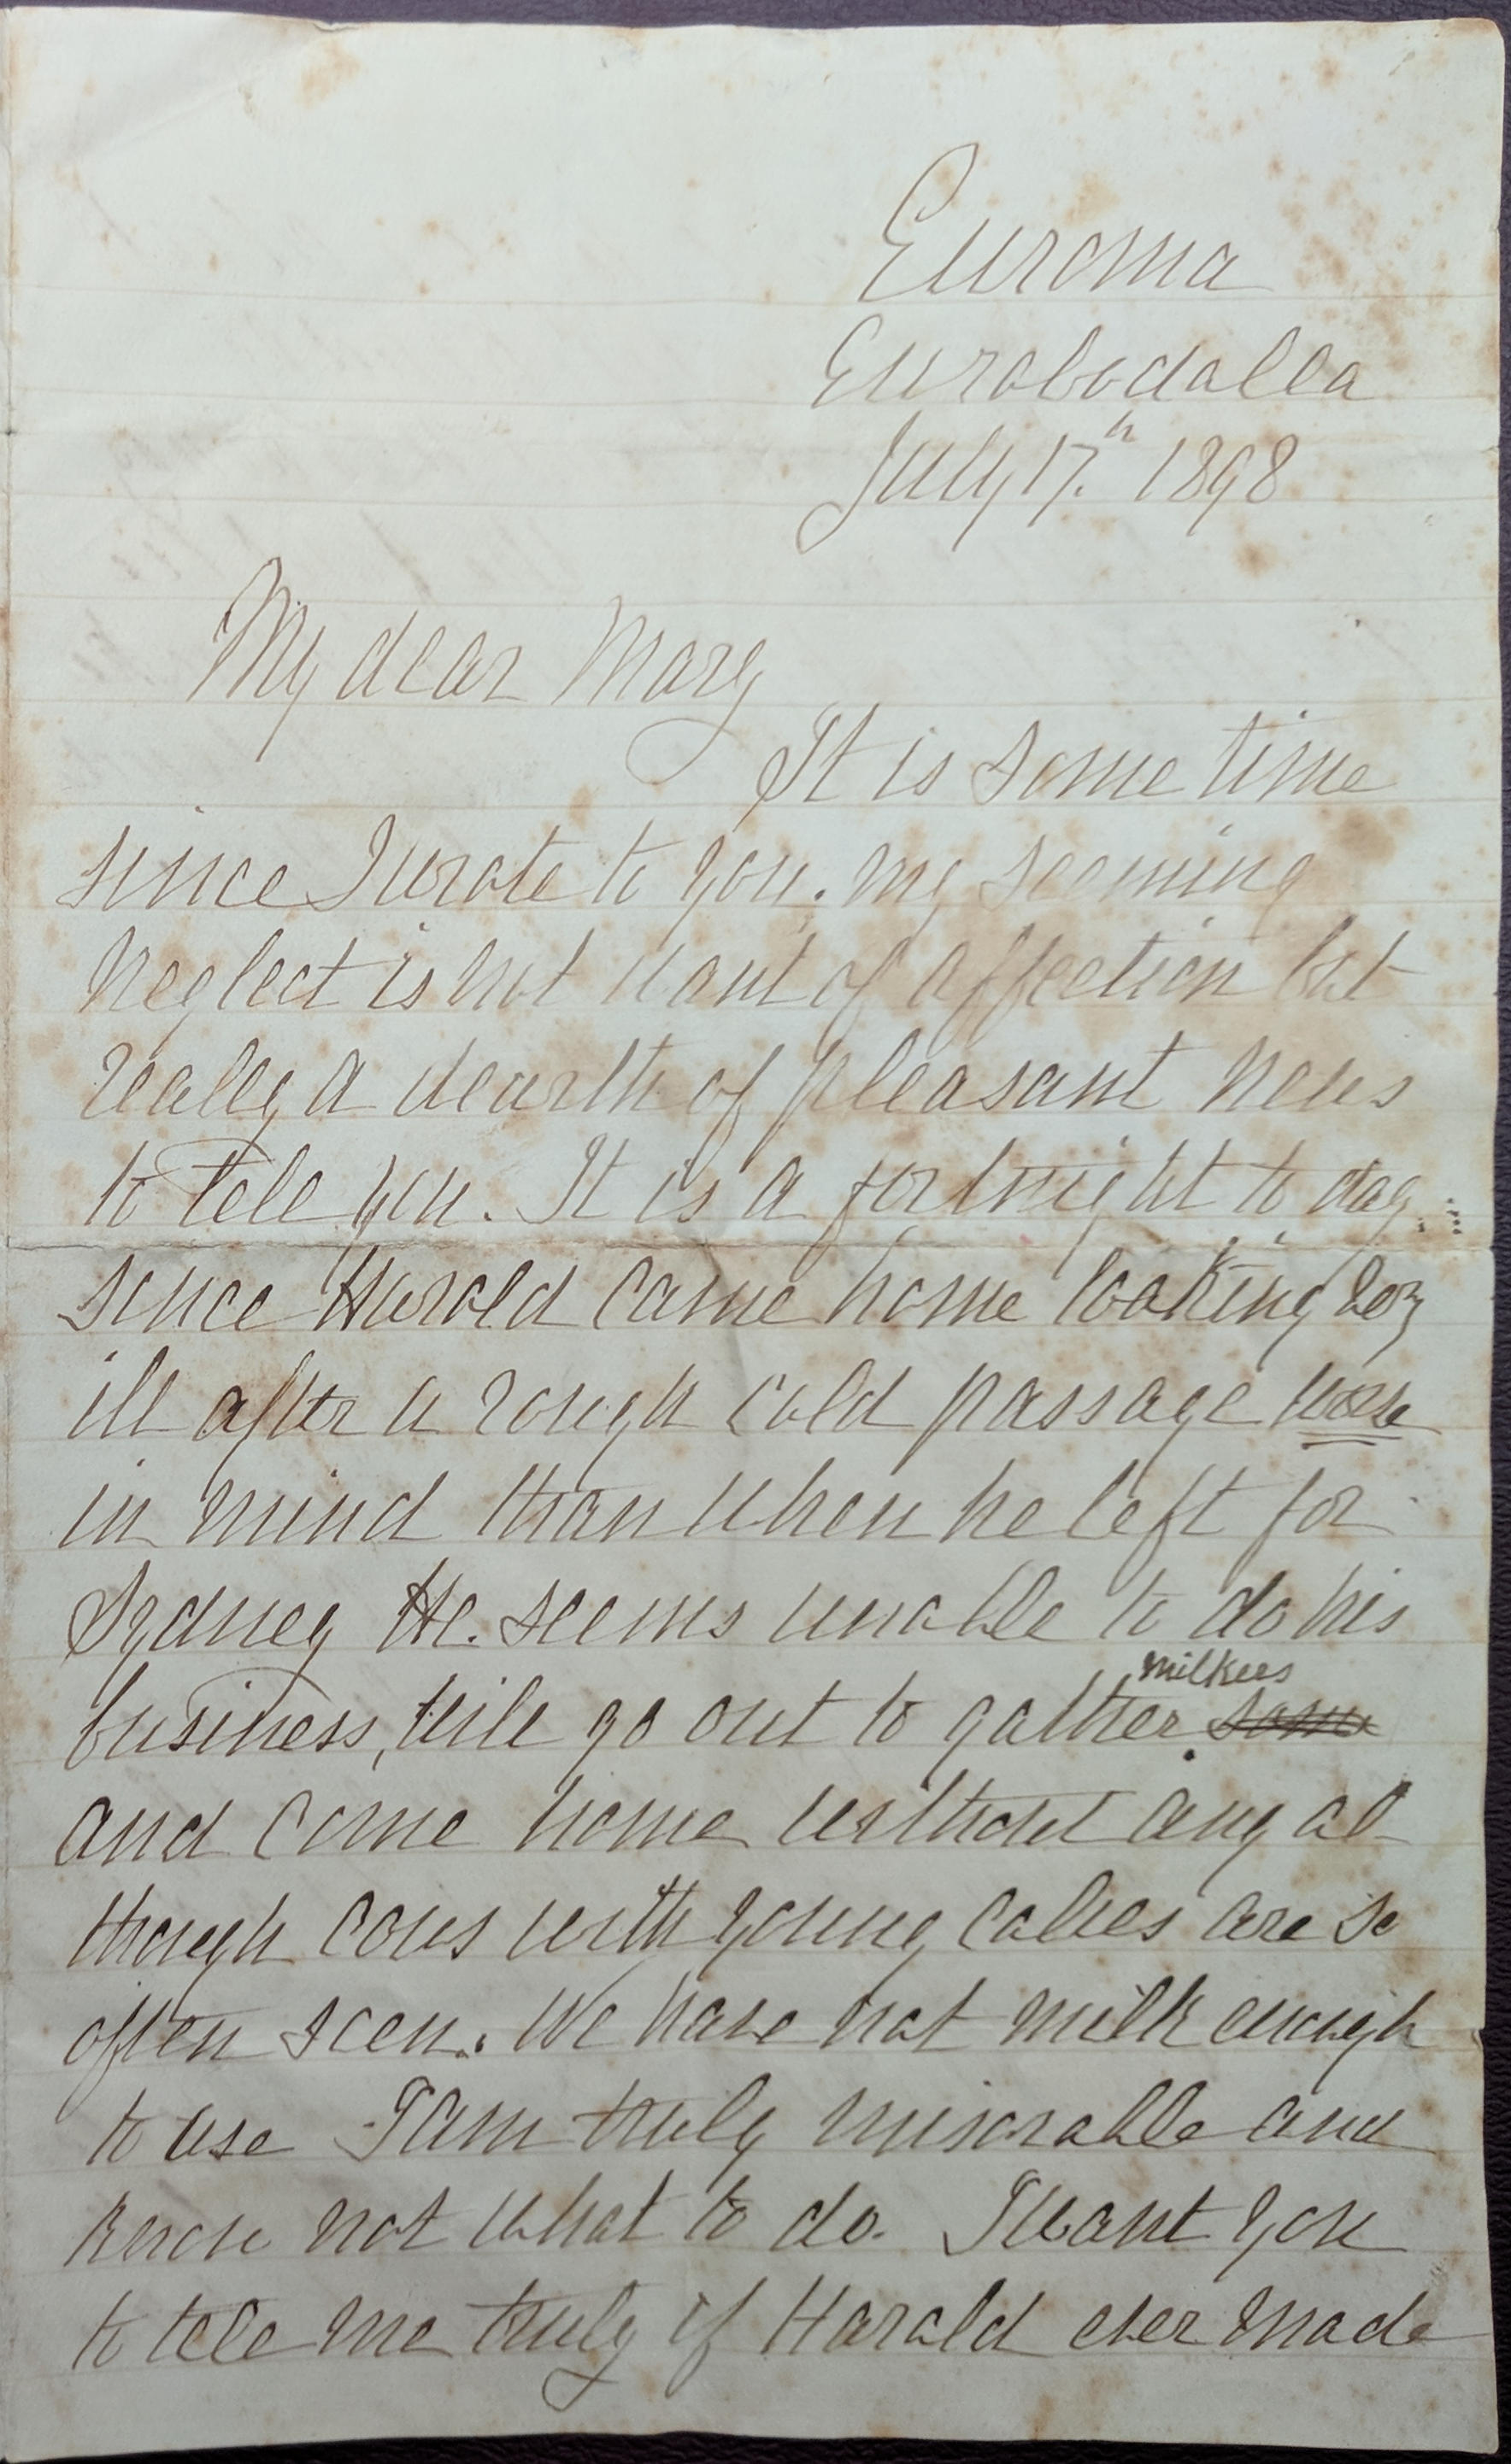 Euroma
Eurobodalla
July 17.th 1898
My dear Mary
It is some time
since I wrote to you. my seeming
neglect is not want of affection but
really a dearth of pleasant news
to tell you. It is a fortnight to day
since Harold came home looking very
ill after a rough cold passage worse
in mind than when he left for
Sydney He. seems unable to do his
business, will go out to gather milkers some
and come home without any al
though cows with young calves are so
often seen. We have not milk enough
to use I am truly miserable and
know not what to do. I want you
to tell me truly if Harald ever made